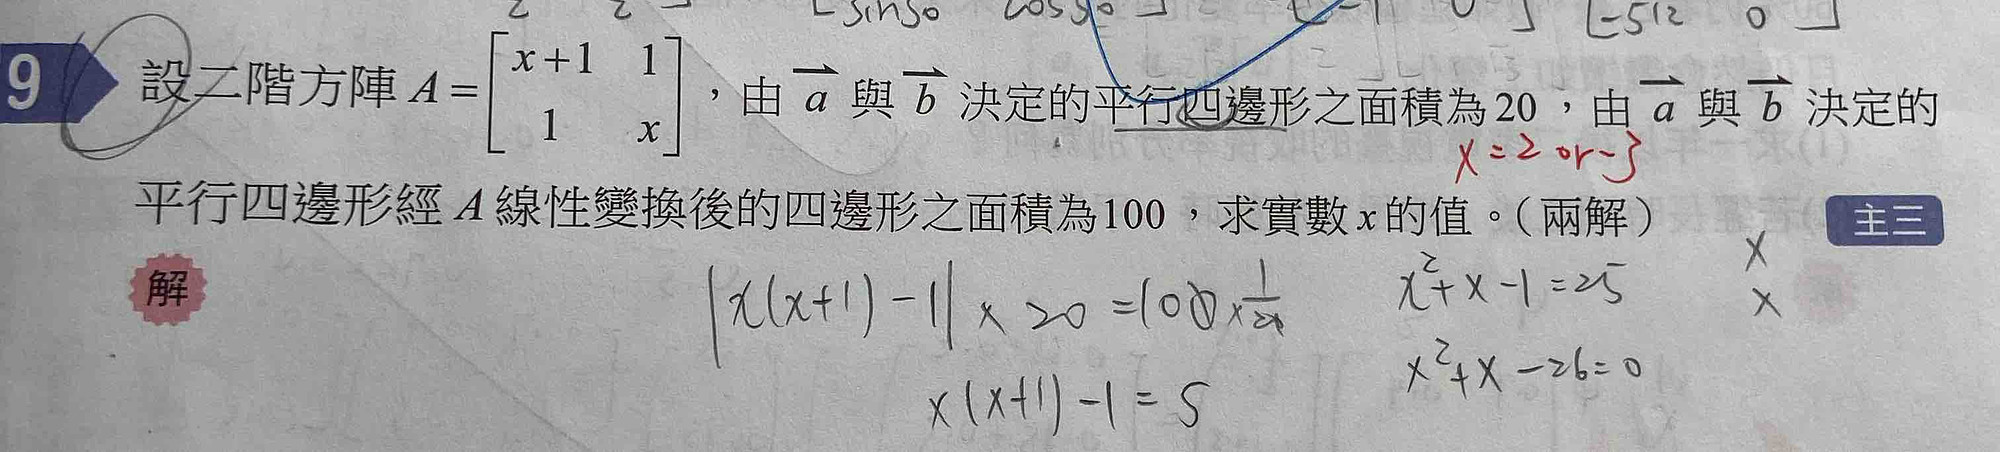 sin30 cos30 -1 0 -512 0
9 設二階方陣 A = [x+1 1; 1 x],由 a 與 b 決定的平行四邊形之面積為20,由 a 與 b 決定的
x = 2 or -3
平行四邊形經 A 線性變換後的四邊形之面積為100,求實數 x 的值。(兩解) 主三
解 |x(x+1)-1| x 20 = 100 x 1/20 x²+x-1=25 x
x
x(x+1)-1=5 x²+x-26=0